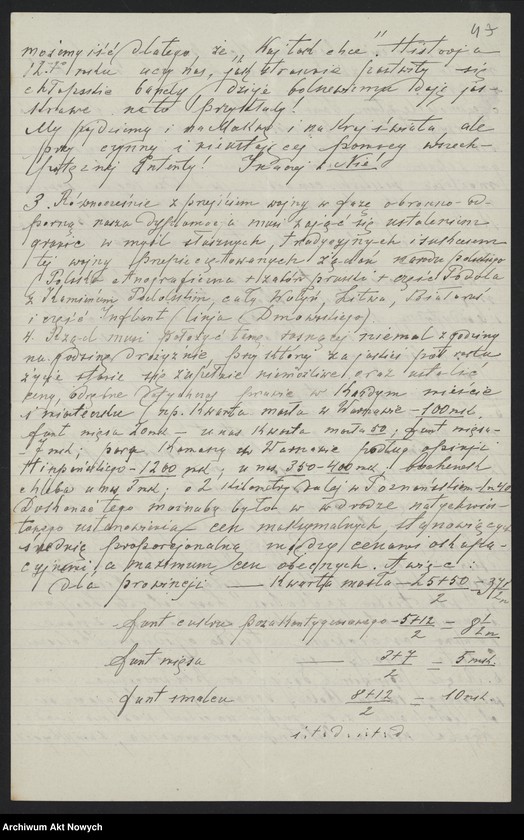 47
możemy iść dlatego, że „Wojtek chce". Historja
12-go roku uczy nas, jak strasznie zemściły się
chłopskie bagnety, dzieje bolszewizmu dają ja-
skrawe na to przykłady!
My pójdziemy i na Moskwę i na kraj świata, ale
przy czynnej i nieustającej pomocy wszech-
potężnej Ententy! Inaczej – Nie!
3. Równocześnie z przejściem wojny w fazę obronno-od-
porną nasza dyplomacja musi zająć się ustaleniem
granic w myśl słusznych, tradycyjnych i skutkiem
tej wojny żądań narodu polskiego
Polska etnograficzna + zabór pruski + część Podola
z Kamieńcem Podolskim, cały Wołyń, Litwa, Białoruś
i część Inflant (linja Dmowskiego).
4. Rząd musi położyć tamę rosnącej niemal z godziny
na godzinę drożyźnie, przy której za jakieś pół roku
życie stanie się zupełnie niemożliwe oraz ustalić
ceny, odrębne dotychczas prawie w każdym mieście
i miasteczku np. kwarta masła w Warszawie – 100 mk.
funt mięsa 20 mk – u nas kwarta masła 50; funt mięsa –
7 mk; para w Warszawie podług
– 1200 mk, u nas 350–400 mk! bochenek
chleba u nas 5 mk; o 2 kilometry dalej w Poznańskiem
Dokonać tego możnaby było w drodze natychmia-
stowego ustanowienia cen maksymalnych stanowiących
średnią proporcjonalną między cenami
a maximum cen obecnych. A więc:
dla prowincji — kwarta masła – 25+50/2 = 37 1/2 m
funt cukru – 5+12/2 = 8 1/2 m
funt mięsa — 3+7/2 = 5 mk.
funt smalcu 8+12/2 = 10 mk.
i.t.d. i.t.d.
Archiwum Akt Nowych